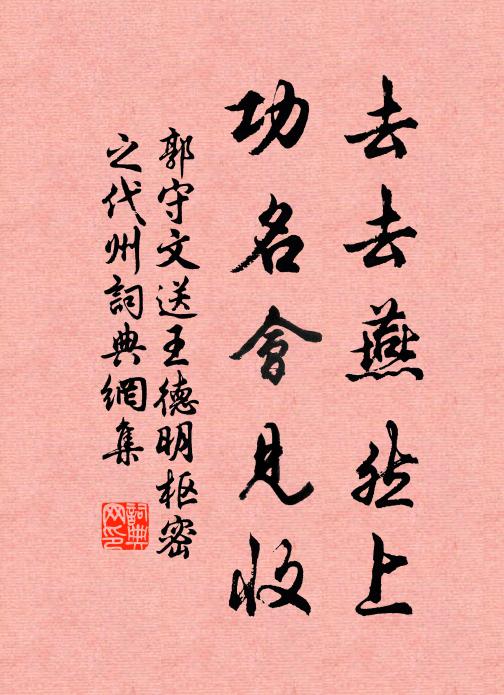 去去燕然上
功名會見收
郭守文送王德明枢密
之代州詞典網集
詞典網印